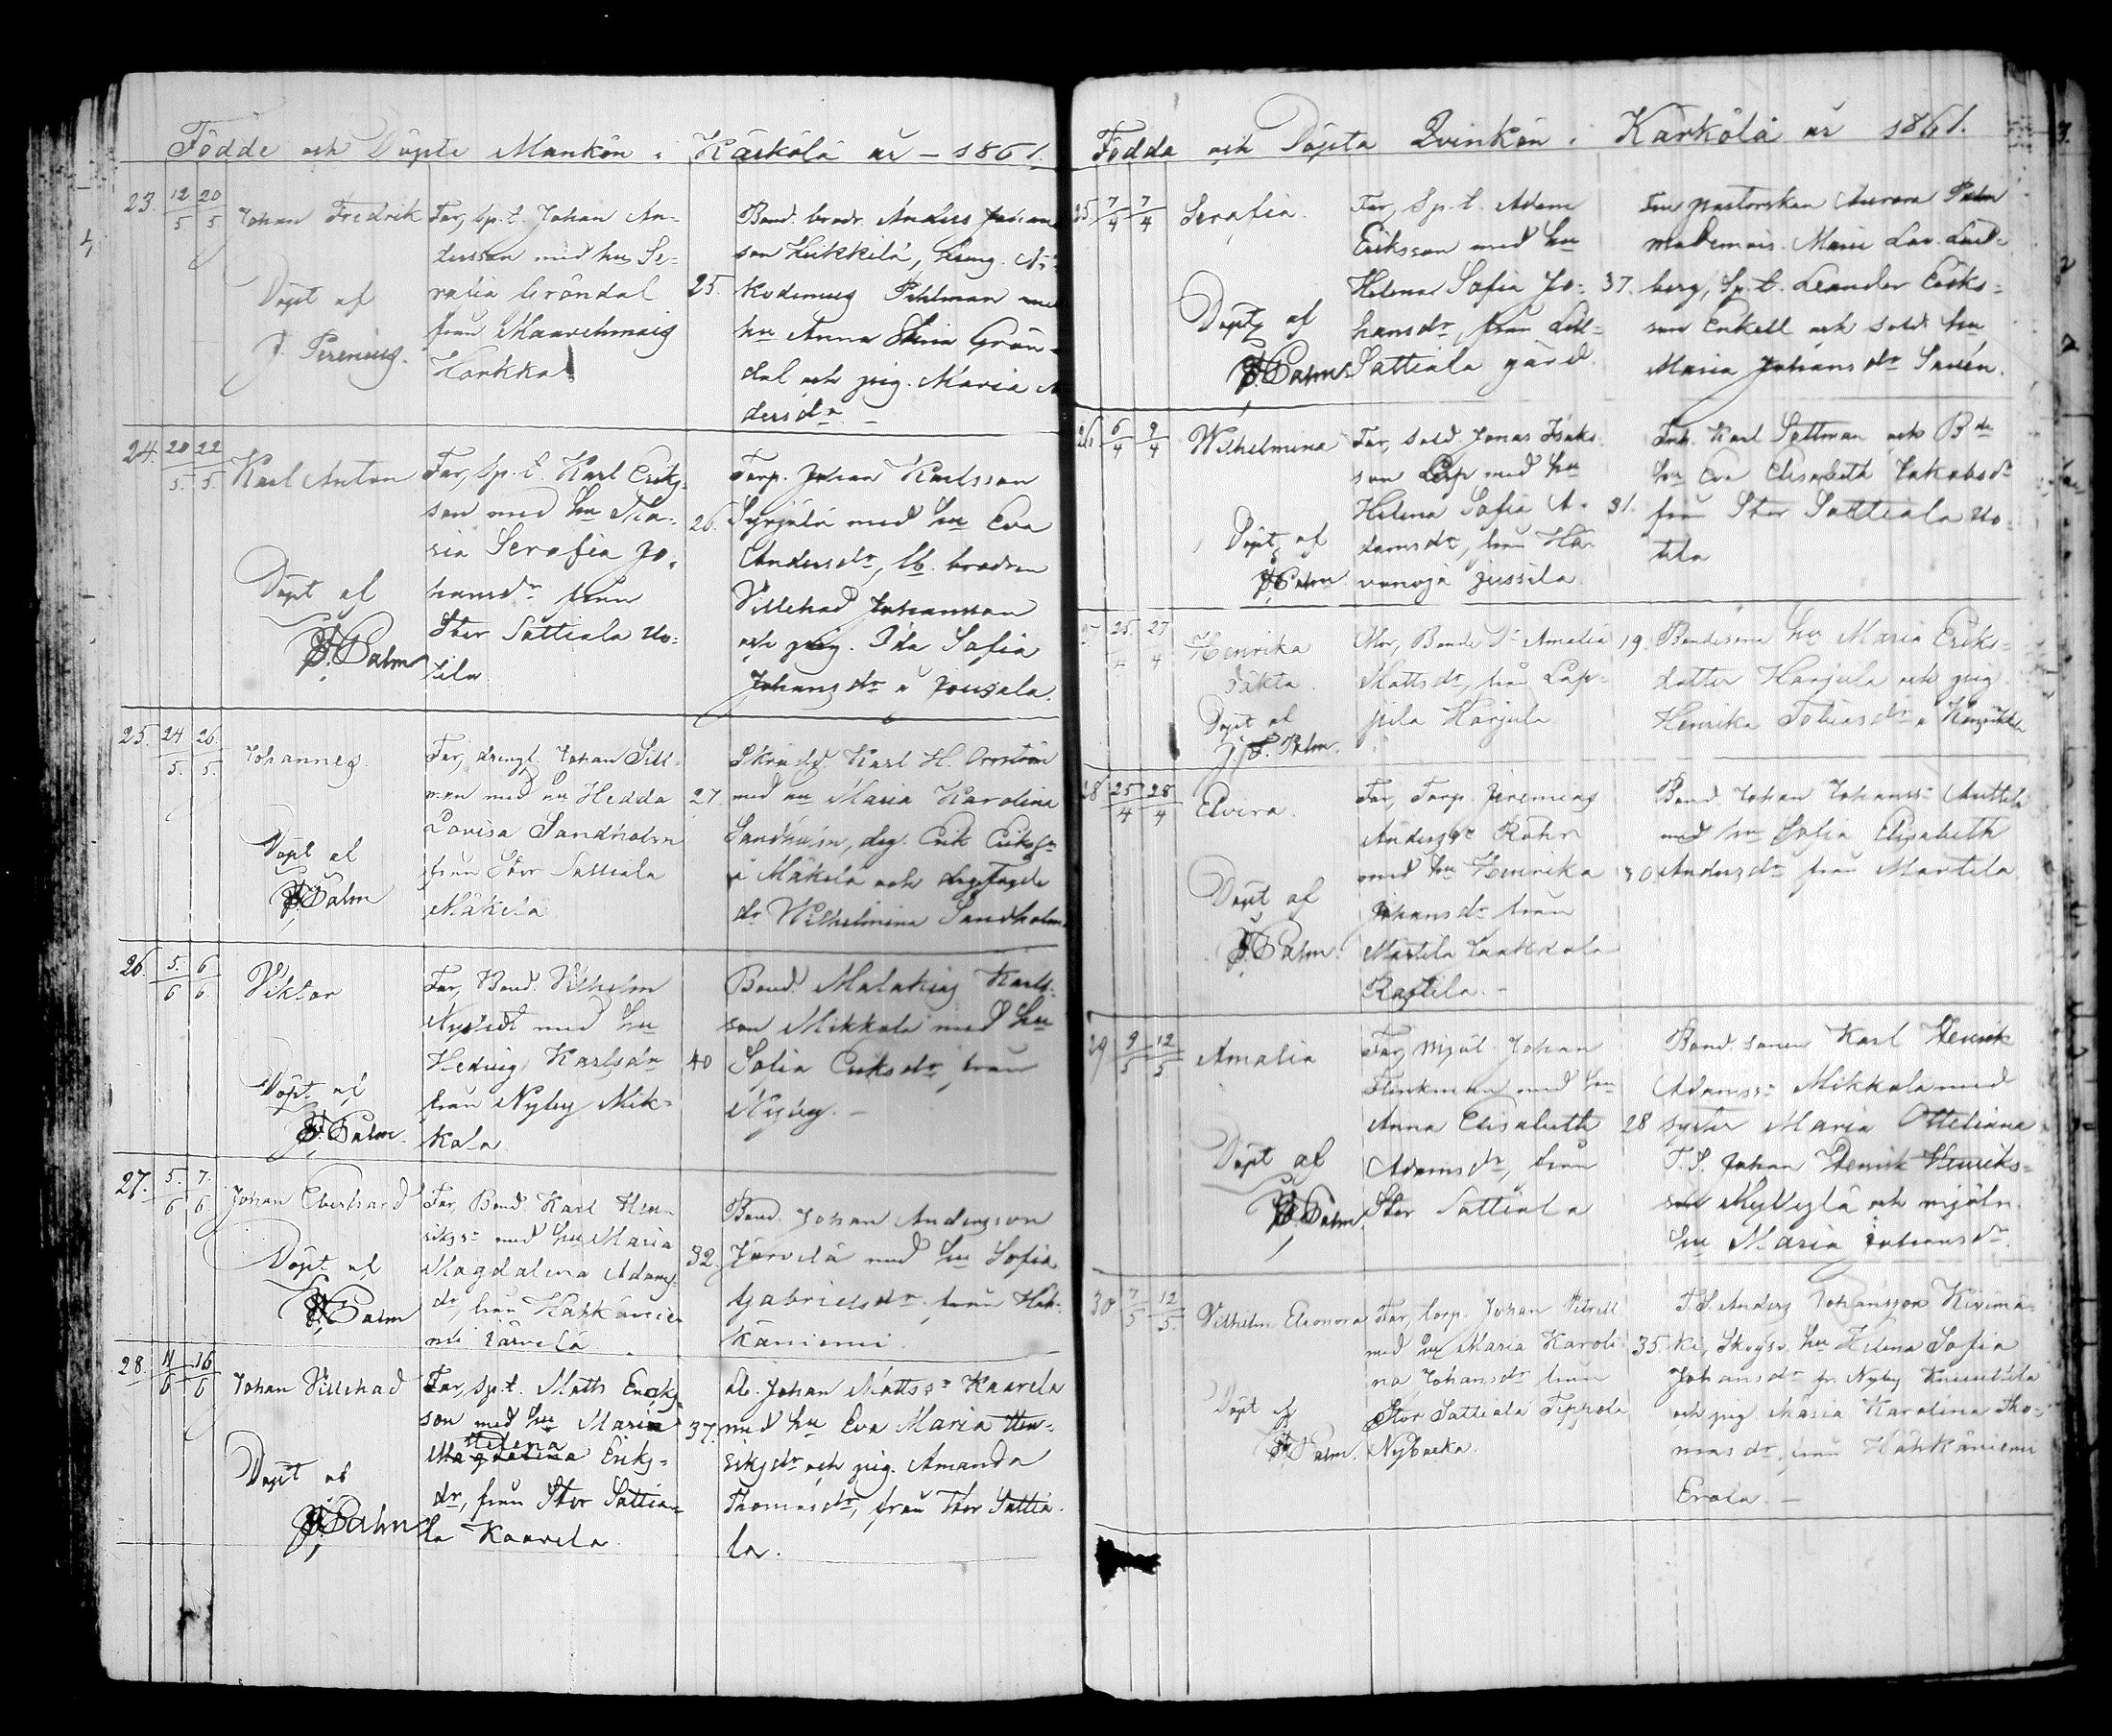 Födde och Döpte Mankön i Kärkölä år – 1861.
23. 12/5 20/5 Johan Fredrik
Döpt af
J. Perenius.
Far, Sp. t. Johan An-
dersson med hu Se-
rafia Gröndal
från Maavehmais
Horkka
25.
Bond. brodr. Anders Johans
son Heikkilä,
kodemus Pihlman med
hu Anna Grön-
dal och pig. Maria
dersdr. –
24. 20/5. 22/5. Karl Anton
Döpt af
J. Palm
Far, Sp. t. Karl Eriks-
son med hu Ma-
ria Serafia Jo-
hansdr från
Stor Sattiala Uo-
tila
26.
Torp. Johan Karlsson
Syrjälä med hu Eva
Andersdr, brodren
Villehad Johansson
och pig. Ida Sofia
Johansdr a Jousala.
25. 24/5. 26/5. Johannes.
Döpt af
J. Palm
Far, drengl. Johan Sill-
man med hu Hedda
Lovisa Sandholm
från Stor Sattiala
Mäkelä
27.
Skrädd. Karl H.
med hu Maria Karolina
Sandholm, drg. Erik Eriksson
i Mäkelä och
dr Wilhelmina Sandholm
26. 5./6 6/6. Viktor
Döpt af
J. Palm.
Far, Bond. Vilhelm
Nystedt med hu
Hedvig Karlsdr
från Nyby Mik-
kola.
40
Bond. Malakias Karls-
son Mikkola med hu
Sofia Eriksdr, från
Nyby. –
27. 5./6 7./6 Johan Everhard
Döpt af
J. Palm
Far, Bond. Karl Hen-
rikss. med hu Maria
Magdalena Adams-
dr, från Hähkänie-
mi Järvelä
32.
Bond. Johan Andersson
Järvelä med hu Sofia
Gabrielsdr. från Häh-
käniemi.
28. 11/6 16/6 Johan Villehad
Döpt af
J. Palm
Far, Sp. t. Matts Ericks-
son med hu Maria
Helena
Magdalena Eriks-
dr, från Stor Sattia-
la Kaavela.
37.
Johan Mattss. Kaavela
med hu Eva Maria Hen-
riksdr och pig. Amanda
Thomasdr, från Stor Sattia-
la.
Födda och Döpta Qvinkön i Kärkölä år 1861.
25 7/4 7/4 Serafia.
Döpt af
J. Palm
Far, Sp. t. Adam
Eriksson med hu
Helena Sofia Jo-
hansdr, från Lill-
Sattiala gård.
37.
Fru pastorskan Aurora Palm
mademois. Marie Lov. Lind-
berg, Sp. t. Leander Eriks-
son Enkell och Sold. hu
Maria Johansdr Savén.
26 6/4 9/4 Wilhelmina
Döpt af
J. Palm.
Far, Sold. Jonas Isaks
son med hu
Helena Sofia A-
damsdr, från Hä-
vänojä Jussila.
31.
Inh. Karl Sattman och Bde
hu Eva Elisabeth Jakobsdr
från Stor Sattiala Uo-
tila
27 25. 27/4 Henrika
oäkta
Döpt af
J. Palm.
Mor, Bonde dr Amalia
Mattsdr, från Lap-
pila Harjula
19.
Bondesona hu Maria Eriks-
dotter Harjula och pig.
Henrika Tobiasdr
28 25/4 28/4 Elvira.
Döpt af
J. Palm.
Far, Torp. Jeremias
Anderss. Röhr
med hu Henrika
Johansdr från
Martila Laakkola
Rastila. –
30
Bond. Johan Johanss. Anttila
med hu Sofia Elisabeth
Andersdr från Martila.
29 9/5 12/5 Amalia
Döpt af
J. Palm
Far, Mjöl. Johan
Flinkman med hu
Anna Elisabeth
Adamsdr, från
Stor Sattiala
28
Bond. sonen Karl Henrik
Adamss. Mikkola med
syster Maria Otteliana
T. S. Johan Henrik Henriks-
son och mjöln.
hu Maria Johansdr.
30 7/5 12/5. Vilhelm Eleonora
Döpt af
J. Palm.
Far, torp. Johan
med hu Maria Karoli-
na Johansdr från
Stor Sattiala Seppälä
Nybacka.
35.
T. S. Anders Johansson Kivimä-
ki, hu Helena Sofia
Johansdr fr Nyby
och pig. Maria Karolina Tho-
masdr, från Hähkäniemi
Erola. –